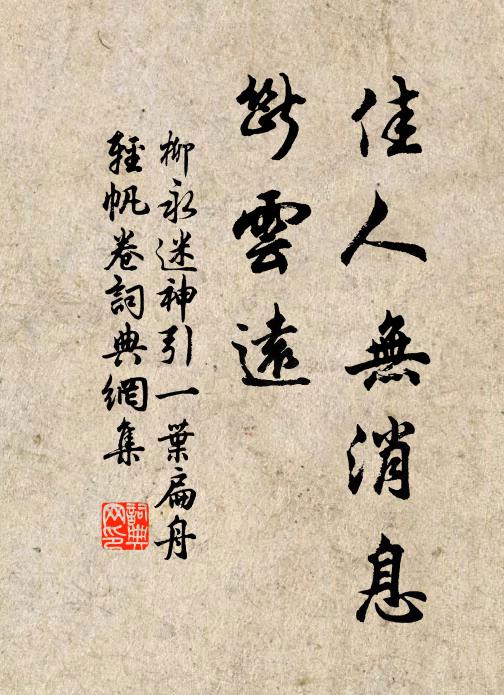 佳人無消息
斷雲遠
柳永迷神引一葉扁舟
輕帆卷詞典網集
詞典网印